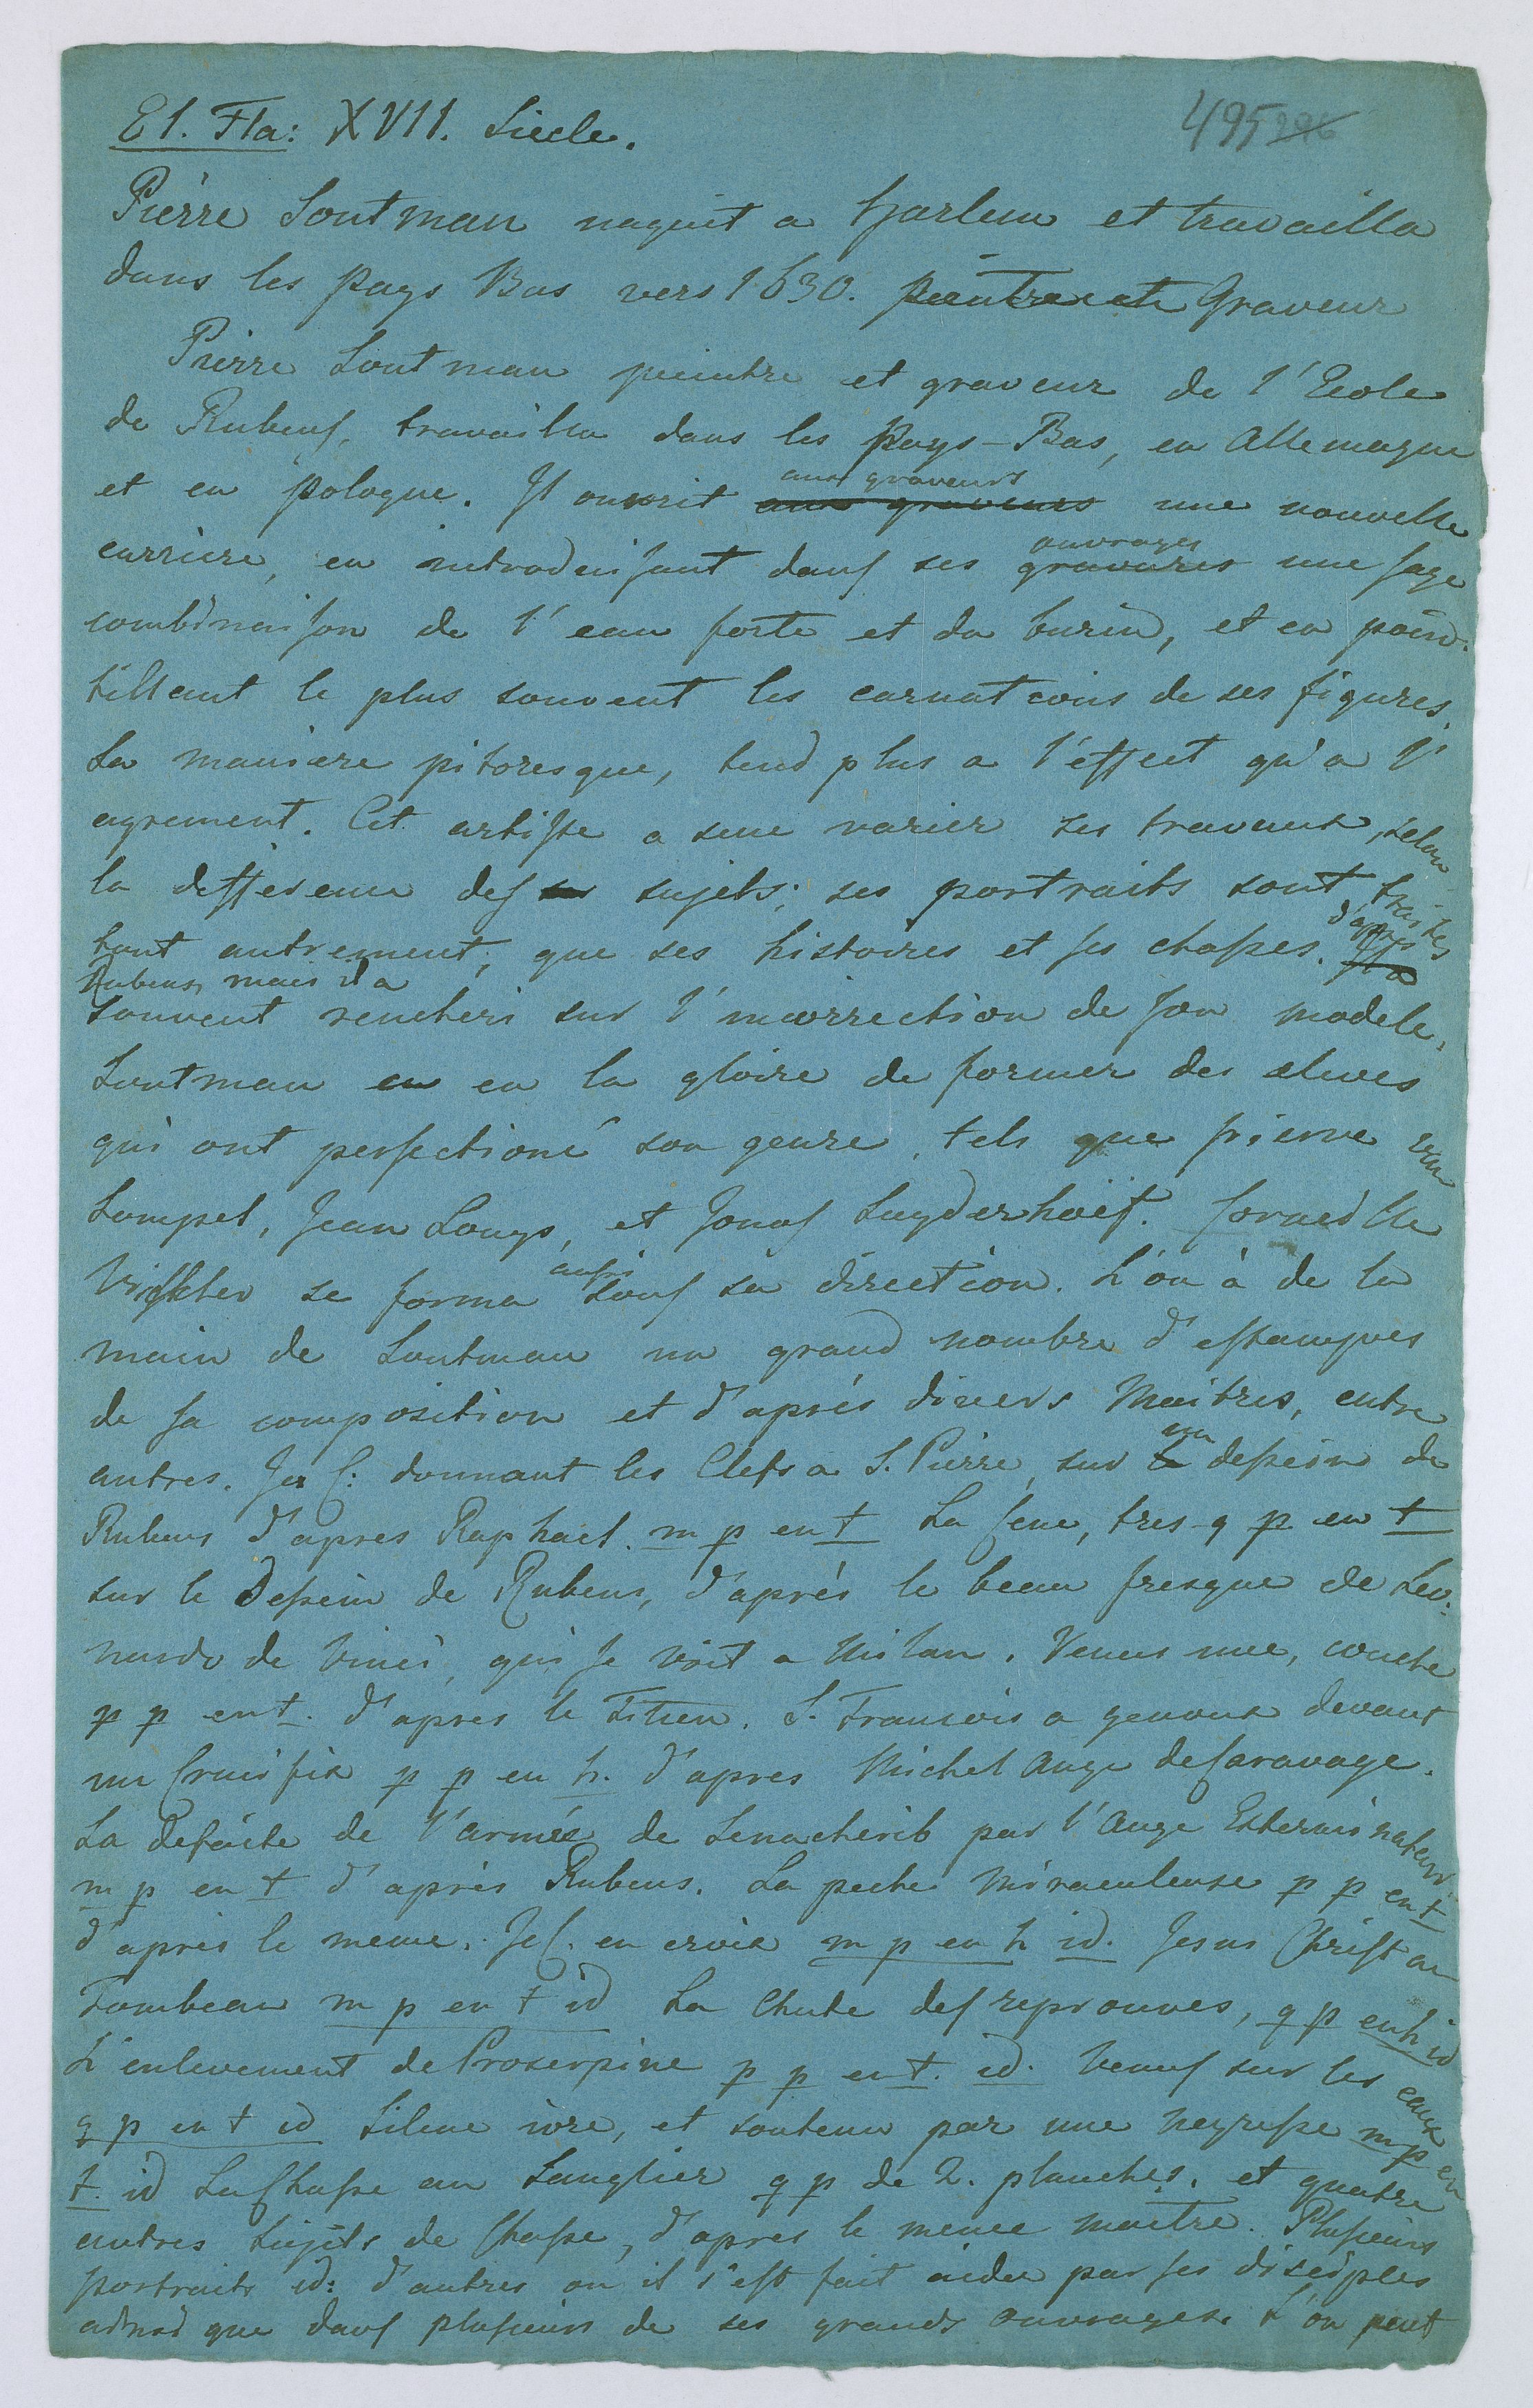 El. Fla: XVII. Siecle. 495 296
Pierre Soutman naquit a Harlem et travailla
dans les Pays Bas vers 1630. peintre et Graveur
Pierre Soutman peintre et graveur de l'Ecole
de Rubens, travailla dans les Pays-Bas, en Allemagne
et en pologne. Il ouvrit aux graveurs aux graveurs une nouvelle
carriere, en introduisant dans ses gravures ouvrages une sage
combinaison de l'eau forte et du burin, et en poin-
tillant le plus souvent les carnations de ses figures.
Sa maniere pitoresque, tend plus a l'effect qu'a l'
agrement. Cet artiste a seue varier ses travaux, selon
la difference des ses sujets; ses portraits sont traites
tout autrement, que ses histoires et ses chasses. Il a d'apres
Rubens, mais il a
souvent rencheri sur l'incorrection de son modele.
Soutman eu eu la gloire de former des eleves
qui ont perfectioné son genre, tels que pierre van
Sompel, Jean Louys, et Jonas Suyderhoëf. Corneille
Vischer se forma aussi sous sa direction. L'on à de la
main de Soutman un grand nombre d'estampes
de sa composition et d'aprés divers Maitres, entre
autres. Jes C: donnant les Clefs a S. Pierre, sur le un dessein de
Rubens d'apres Raphael. m p en t La Cene, tres-g p en t
sur le Dessein de Rubens, d'aprés le beau fresque de Leo:
nardo de Vinci, qui se voit a Milan. Venus nue, couche
p p en t. d'apres le Titien. S. Francois a genoux devant
un Crucifix p p en h. d'apres Michel Ange de Caravage.
La defaite de l'armée de Senacherib par l'Ange Exterminateur
m p en t d'aprés Rubens. La peche Miraculeuse p p en t
d'aprés le meme. J C. en croix m p en h id. Jesus Christ au
Tombeau m p en t id La Chute des reprouves, g p en h id
L'enlevement de Proserpine p p en t. id. Venus sur les eaux
g p en t id Silene ivre, et soutenu par une negresse m p en
t. id La Chasse au Sanglier g p de 2. planches. et quatre
autres sujets de Chasse, d'apres le meme maitre. Plusieurs
portraits id: d'autres ou il s'est fait aider par ses disciples
ainsi que dans plusieurs de ses grands ouvrages. L'on peut